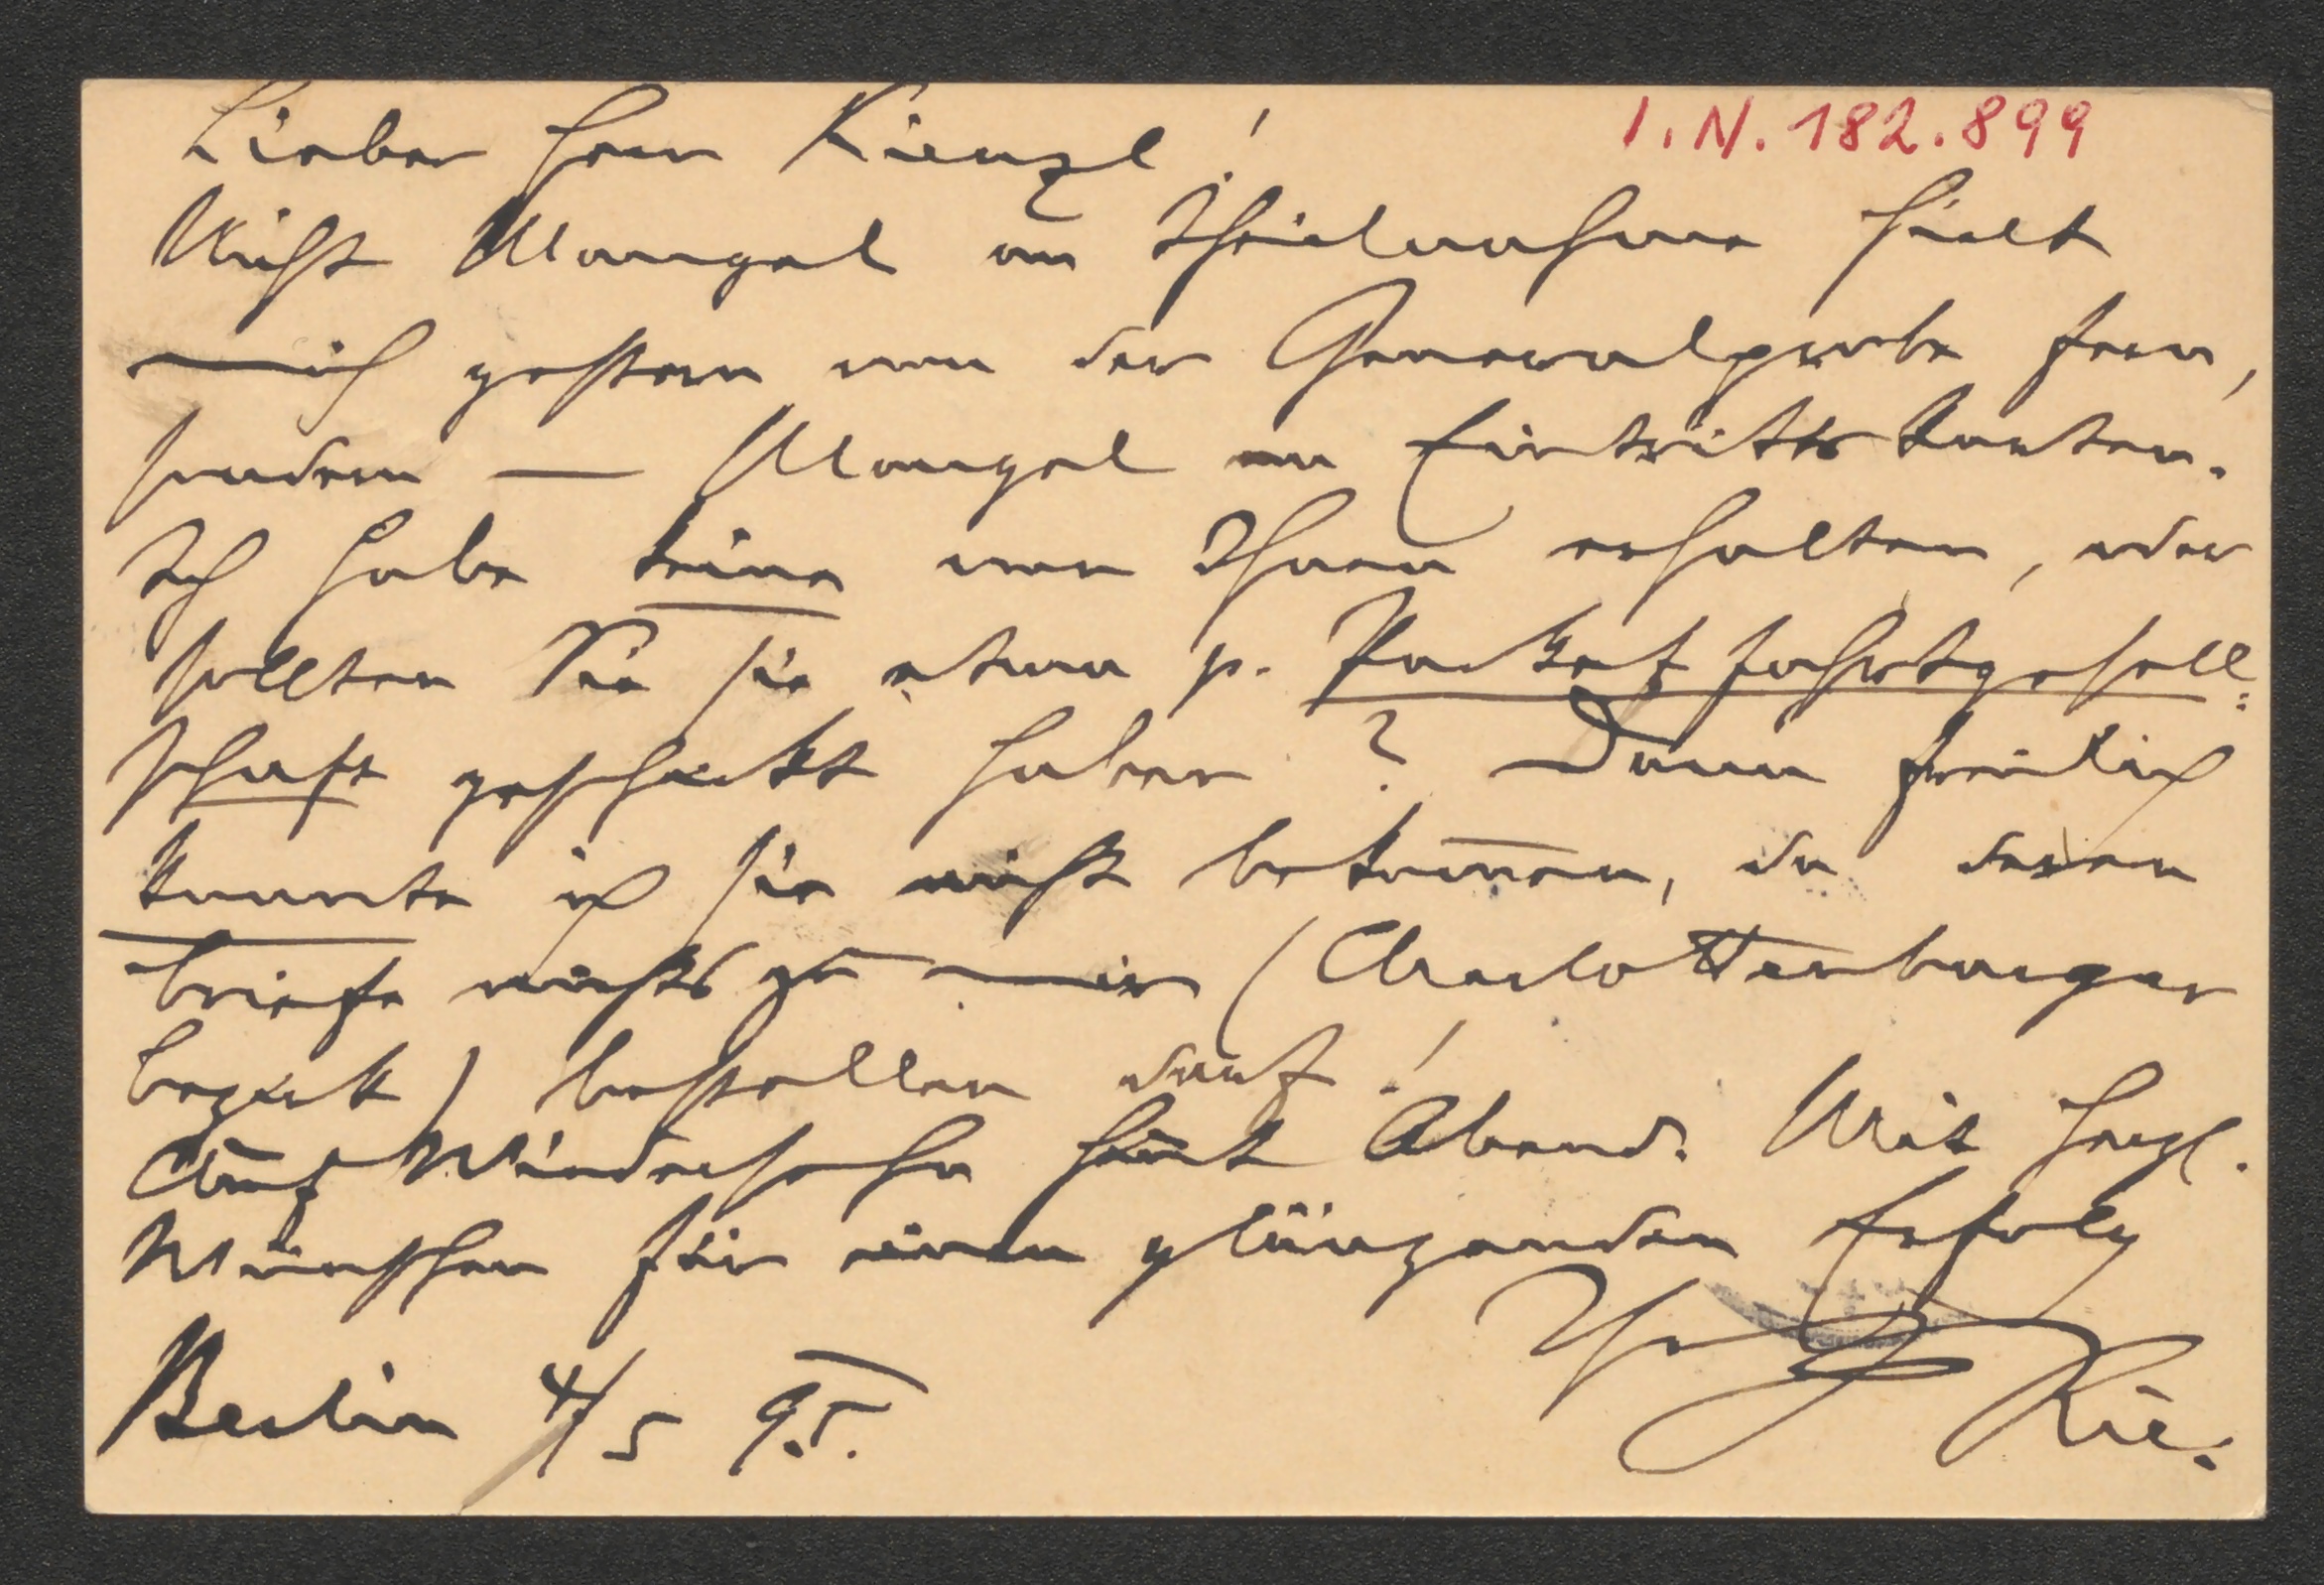 I.N. 182.899
Lieber Herr Kienzl!
Nicht Mangel an Theilnahme hielt
mich gestern von der Generalprobe fern,
sondern — Mangel an Eintrittskarten.
Ich habe keine von Ihnen erhalten, oder
sollten Sie sie etwa p. Packetfahrtgesell:
schaft geschickt haben? Dann freilich
konnte ich sie nicht bekom̅en, da deren
briefe nichts zu mir (Charlottenburger
bezirk) bestellen darf!
Auf Wiedersehn heut Abend. Mit herzl.
Wünschen für einen glänzenden Erfolg
Ihr
Berlin 4/5 95.